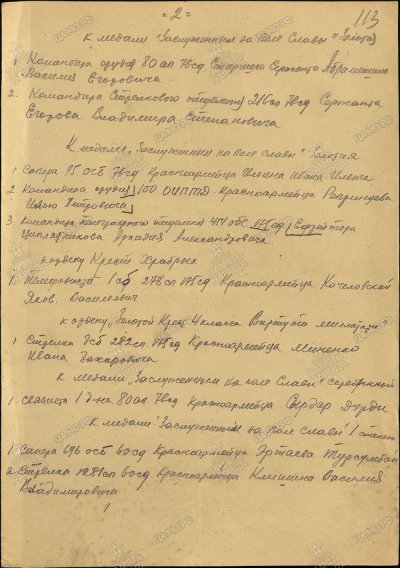 - 2 -
113
К медали "Заслуженным на поле Славы" "Золотая"
1. Командира орудия 80 ап 76сд Старшего Сержанта
Василия Егоровича
2. Командира Стрелкового отделения 216ап 76сд Сержанта
Егорова Владимира Степановича
К медали "Заслуженным на поле Славы" Золотая
1 Сапера 95 осб 76сд Красноармейца Илина Ивана Ильича
2 Командира орудия 100 ОИПТД Красноармейца
Илью Петровича
3. Командира отделения 454 обс 175сд Ефрейтора
Аркадия Александровича
к ордену Крест Храбрых
1. Телефониста 1 сб 278сп 175сд Красноармейца Кочеловский
Яков Васильевич
к ордену "Золотой Крест" 4 класса Виртути милитари
1 Стрелка 3сб 282сп 175сд Красноармейца Миненко
Ивана Захаровича
К медали "Заслуженным на поле Славы" серебрянный
1. связиста 1 д-на 80ап 76сд Красноармейца Сырдар Дурды
К медали "Заслуженным на поле Славы" 1 степени
1. Сапера 696 осб 60сд Красноармейца Эртаева Турсумбай
2 Стрелка 1281сп 60сд Красноармейца Клишина Василия
Владимировича